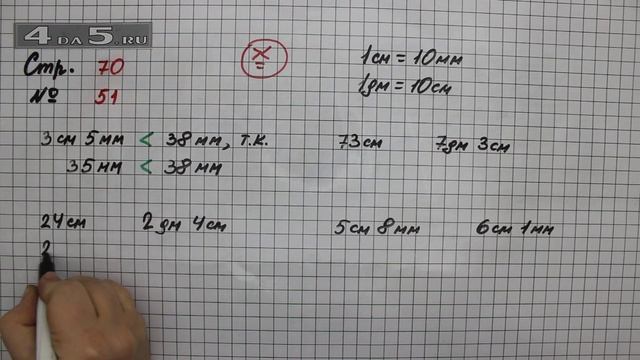 4 DA 5.RU
Стр. 70
№ 51
x
=
1см = 10мм
1дм = 10см
3см 5мм < 38мм, т.к.
35мм < 38мм
73см 7дм 3см
24см 2дм 4см
2
5см 8мм 6см 1мм